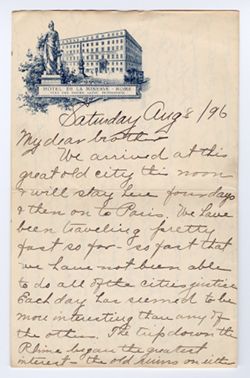 HOTEL DE LA MINERVE - ROME
Saturday Aug 8/96
My dear brother
We arrived at this
great old city this noon
& will stay here four days
& then on to Paris. We have
been traveling pretty
fast so far - so fast that
we have not been able
to do all of the cities justice
Each day has seemed to be
more interesting than any of
the others. The trip down the
Rhine began the greatest
interest - the old ruins on eith